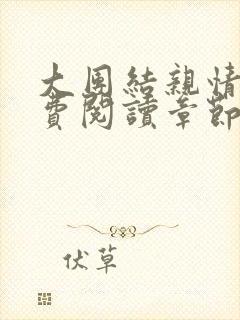 大團結親情
費閱讀章節
伏草